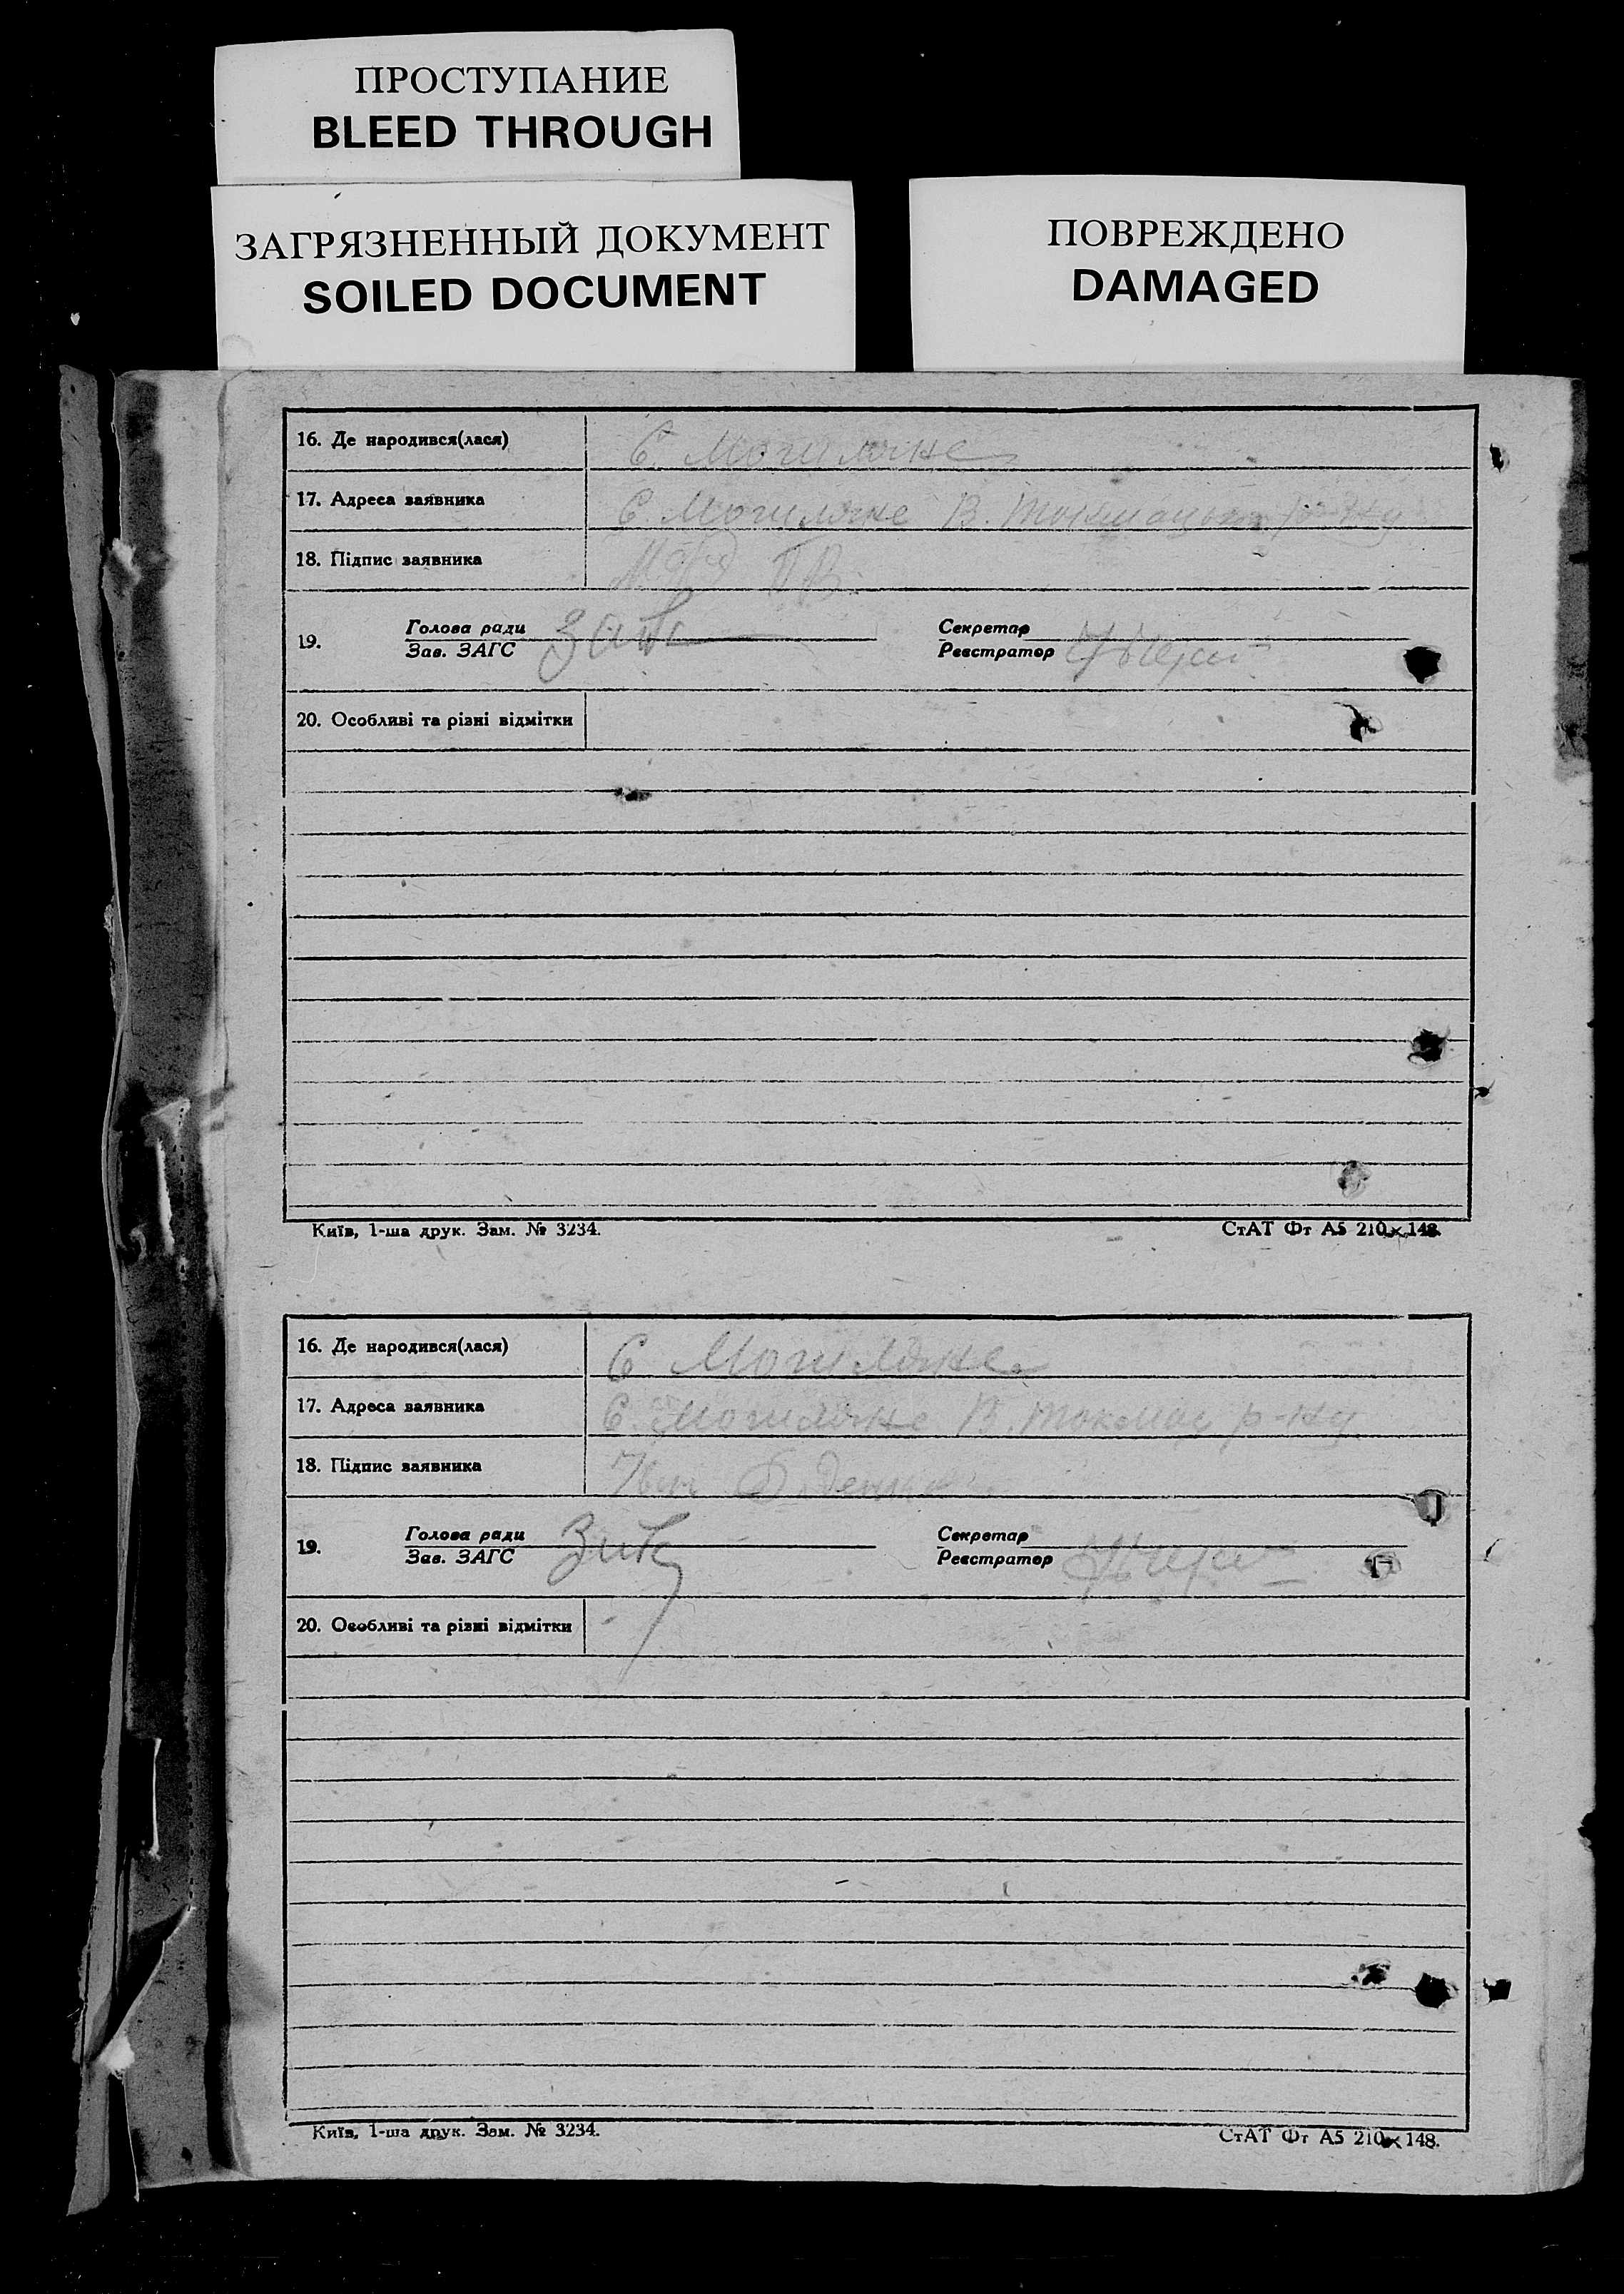 ПРОСТУПАНИЕ
BLEED THROUGH
ЗАГРЯЗНЕННЫЙ ДОКУМЕНТ
SOILED DOCUMENT
ПОВРЕЖДЕНО
DAMAGED
16. Де народився(лася) С. Могиляне
17. Адреса заявника С. Могиляне В. р-ну
18. Підпис заявника
19. Голова ради Секретар
Зав. ЗАГС Реєстратор
20. Особливі та різні відмітки
Київ, 1-ша друк. Зам. № 3234. СтАТ Фт А5 210×148.
16. Де народився(лася) С Могиляне
17. Адреса заявника С. Могиляне В. Токмац р-ну
18. Підпис заявника
19. Голова ради Секретар
Зав. ЗАГС Реєстратор
20. Особливі та різні відмітки
Київ, 1-ша друк. Зам. № 3234. СтАТ Фт А5 210×148.